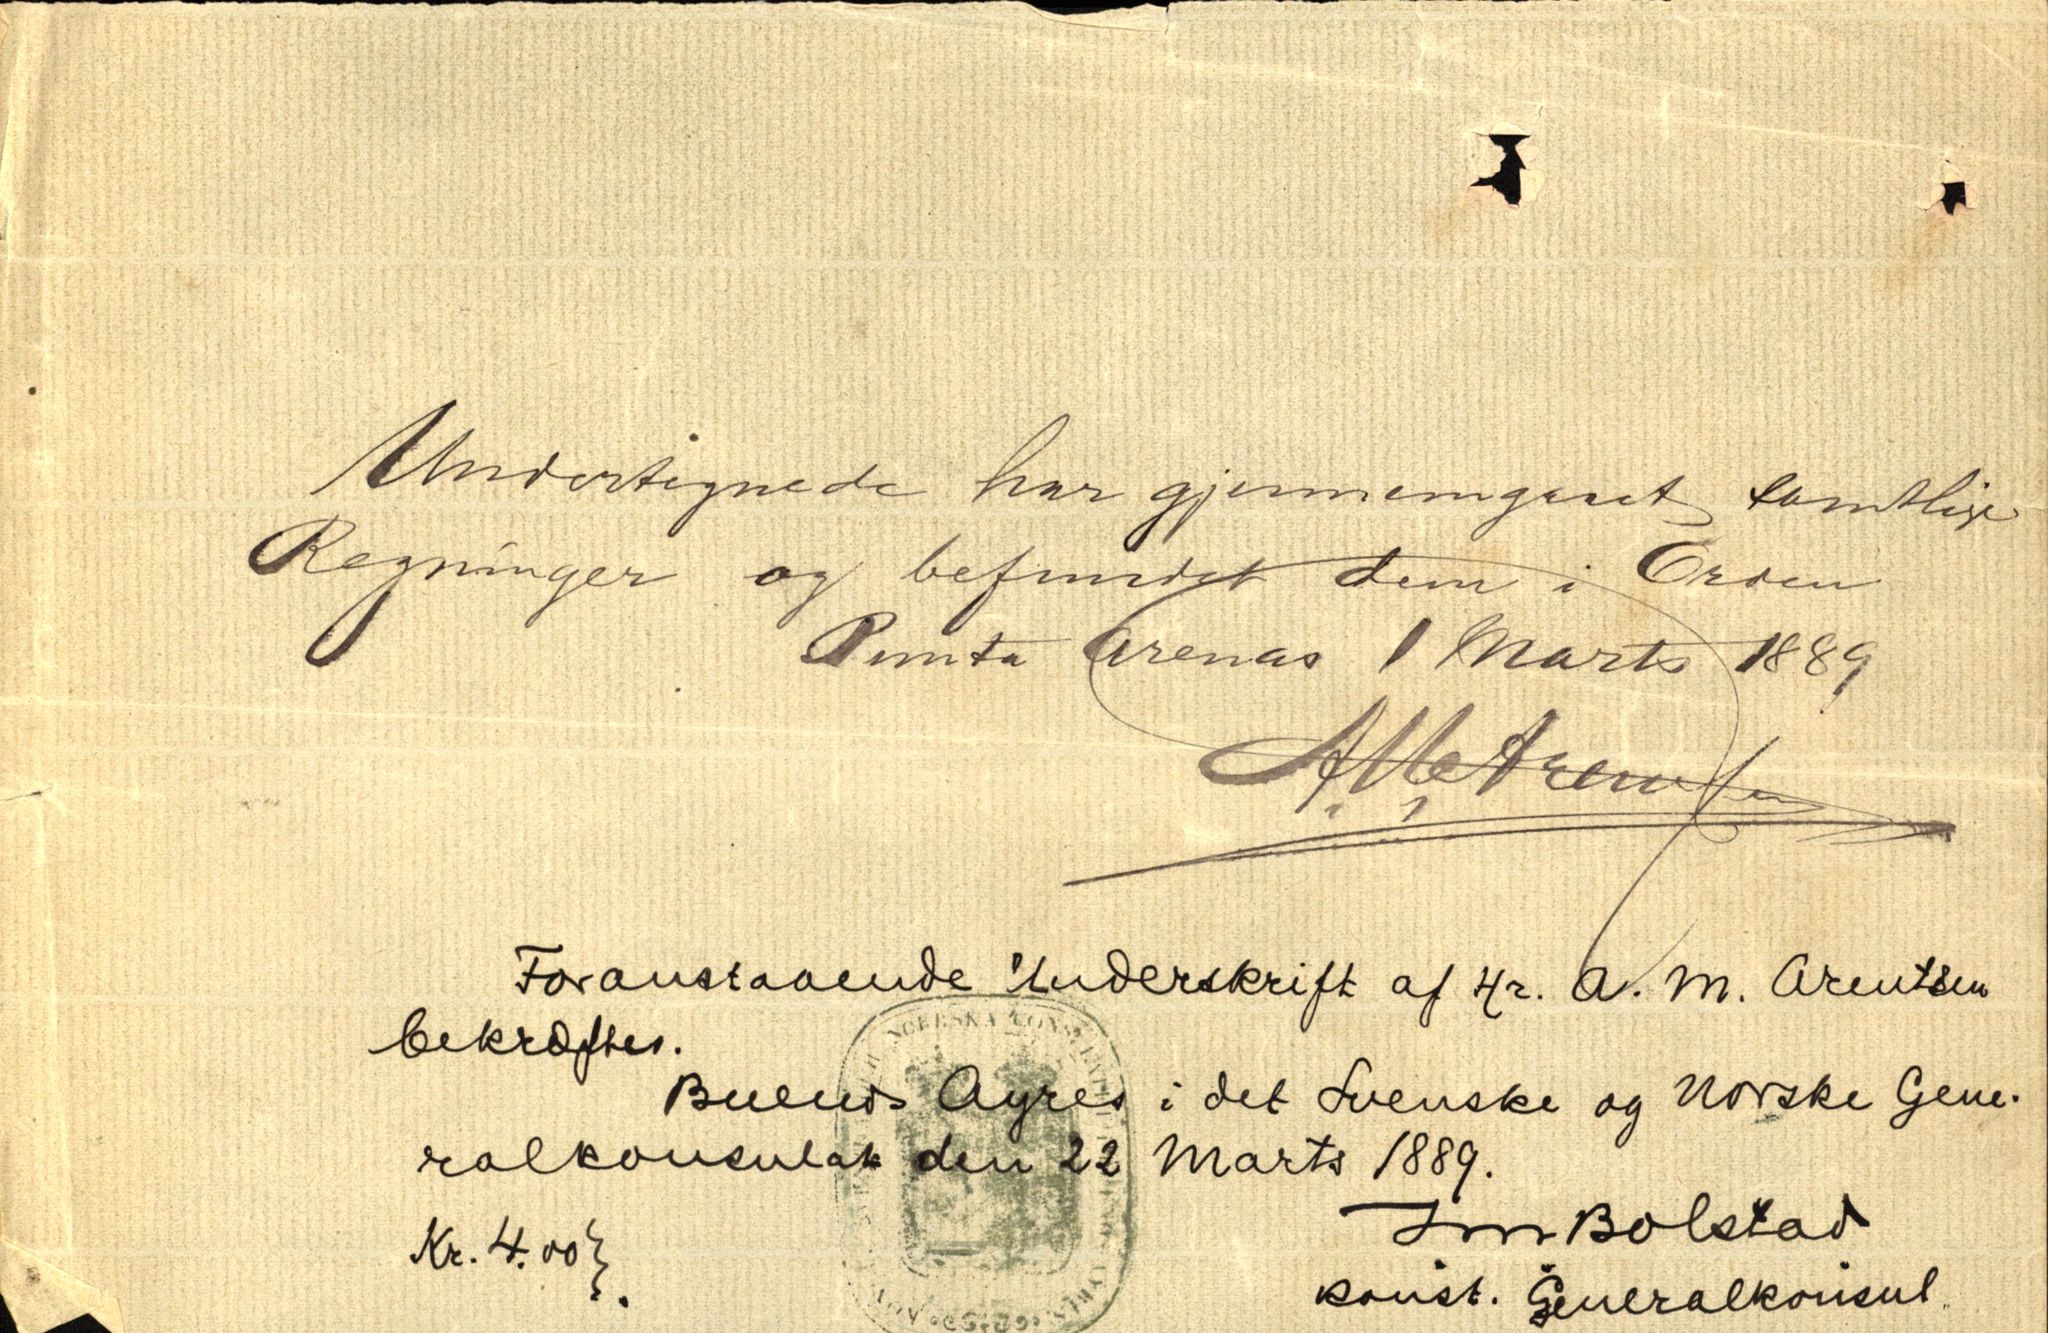 Undertegnede har gjennemgaaet samtlige
Regninger og befundet dem i Orden
Punta Arenas 1 Marts 1889
A. M. Arentsen
Foranstaaende Underskrift af Hr. A. M. Arentsen
bekræftes.
Buenos Ayres i det Svenske og Norske Gene-
ralkonsulat den 22 Marts 1889.
Kr. 4.00
Bolstad
konst. Generalkonsul